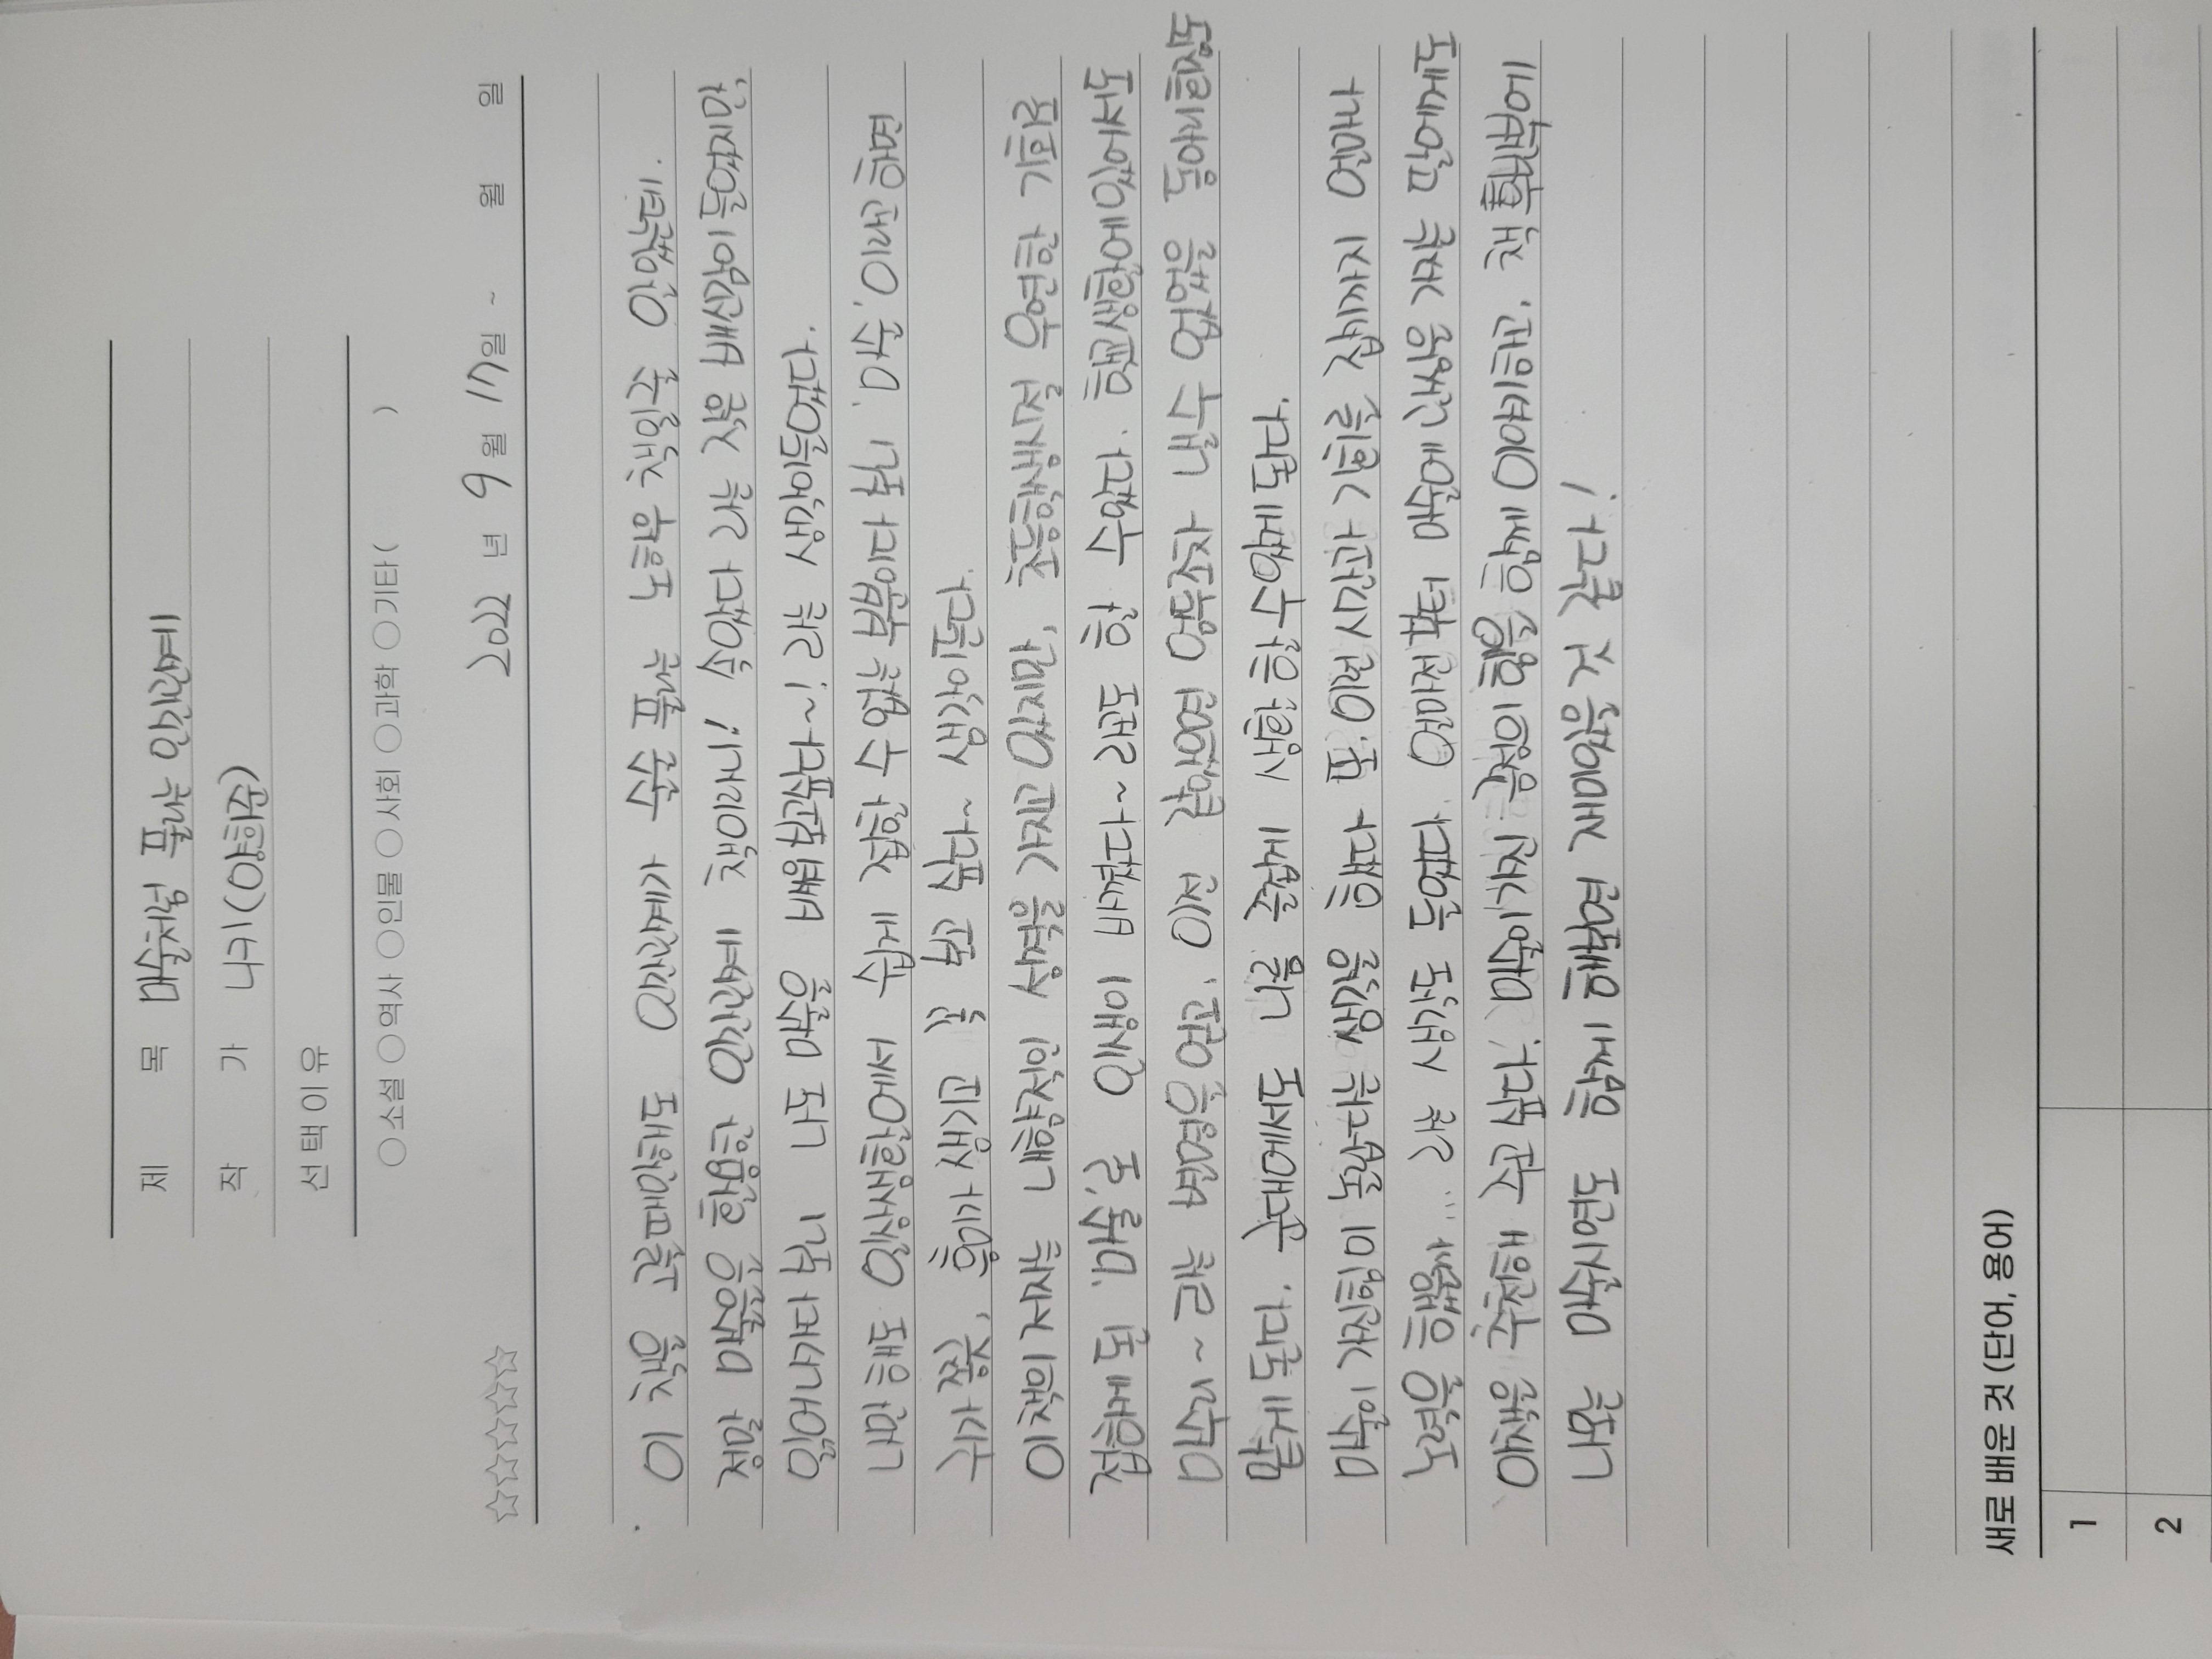 제 목 마술처럼 풀리는 인간관계
작 가 니키(양희준)
선택이유
소설 역사 인물 사회 과학 기타( )
2022 년 9 월 17일 ~ 월 일
이 책을 고를때만해도 인간관계가 술술 풀리는 노하우 책일줄 알았는데.
정말 마술을 활용한 인간관계 책이라니! 속았다 라는 작은 배신감이 들었지만,
읽어나가다 보니 나도 마술을 배워보고싶다~! 라는 생각이들었다.
나만 해도 일상생활에서 쉽게 접할 수 없는 부분이다 보니 '마술'이라고 하면
귀가 쫑긋, 흥미가 생기고 꼭 보고 싶다~ 생각이든다.
이 책의 저자는 내향적인 성격을 가지고 있지만, 초등학생시절 우연한 기회로
접하게 된 '마술'로 인생이 바꼈다~라고도 할 수있다. 학교생활에있어서도
마수리~ 라는 별명을 얻고, 이전 같았으면 엄두조차 낼수 없었을 동아리회장도
맡게 된다. 군대에서도 나름 즐겁게 생활 할 수있게 된다.
마술이 가진힘이 놀랍다는 생각을 했다 또. 이런 시간과 기회를 잡기까지 얼마나
노력을 했을까... 라는 생각도 들었다. 얼마전부터 마술에 관심을 가지는 딸에게도
이책을 추천해 주고 싶다. 마술이 가진 긍정의 힘을 함께 이야기하고, 책 후반부에
나오는 마술시연도 함께 해보면 재미있을 것 같다!
새로 배운 것 (단어, 용어)
1
2